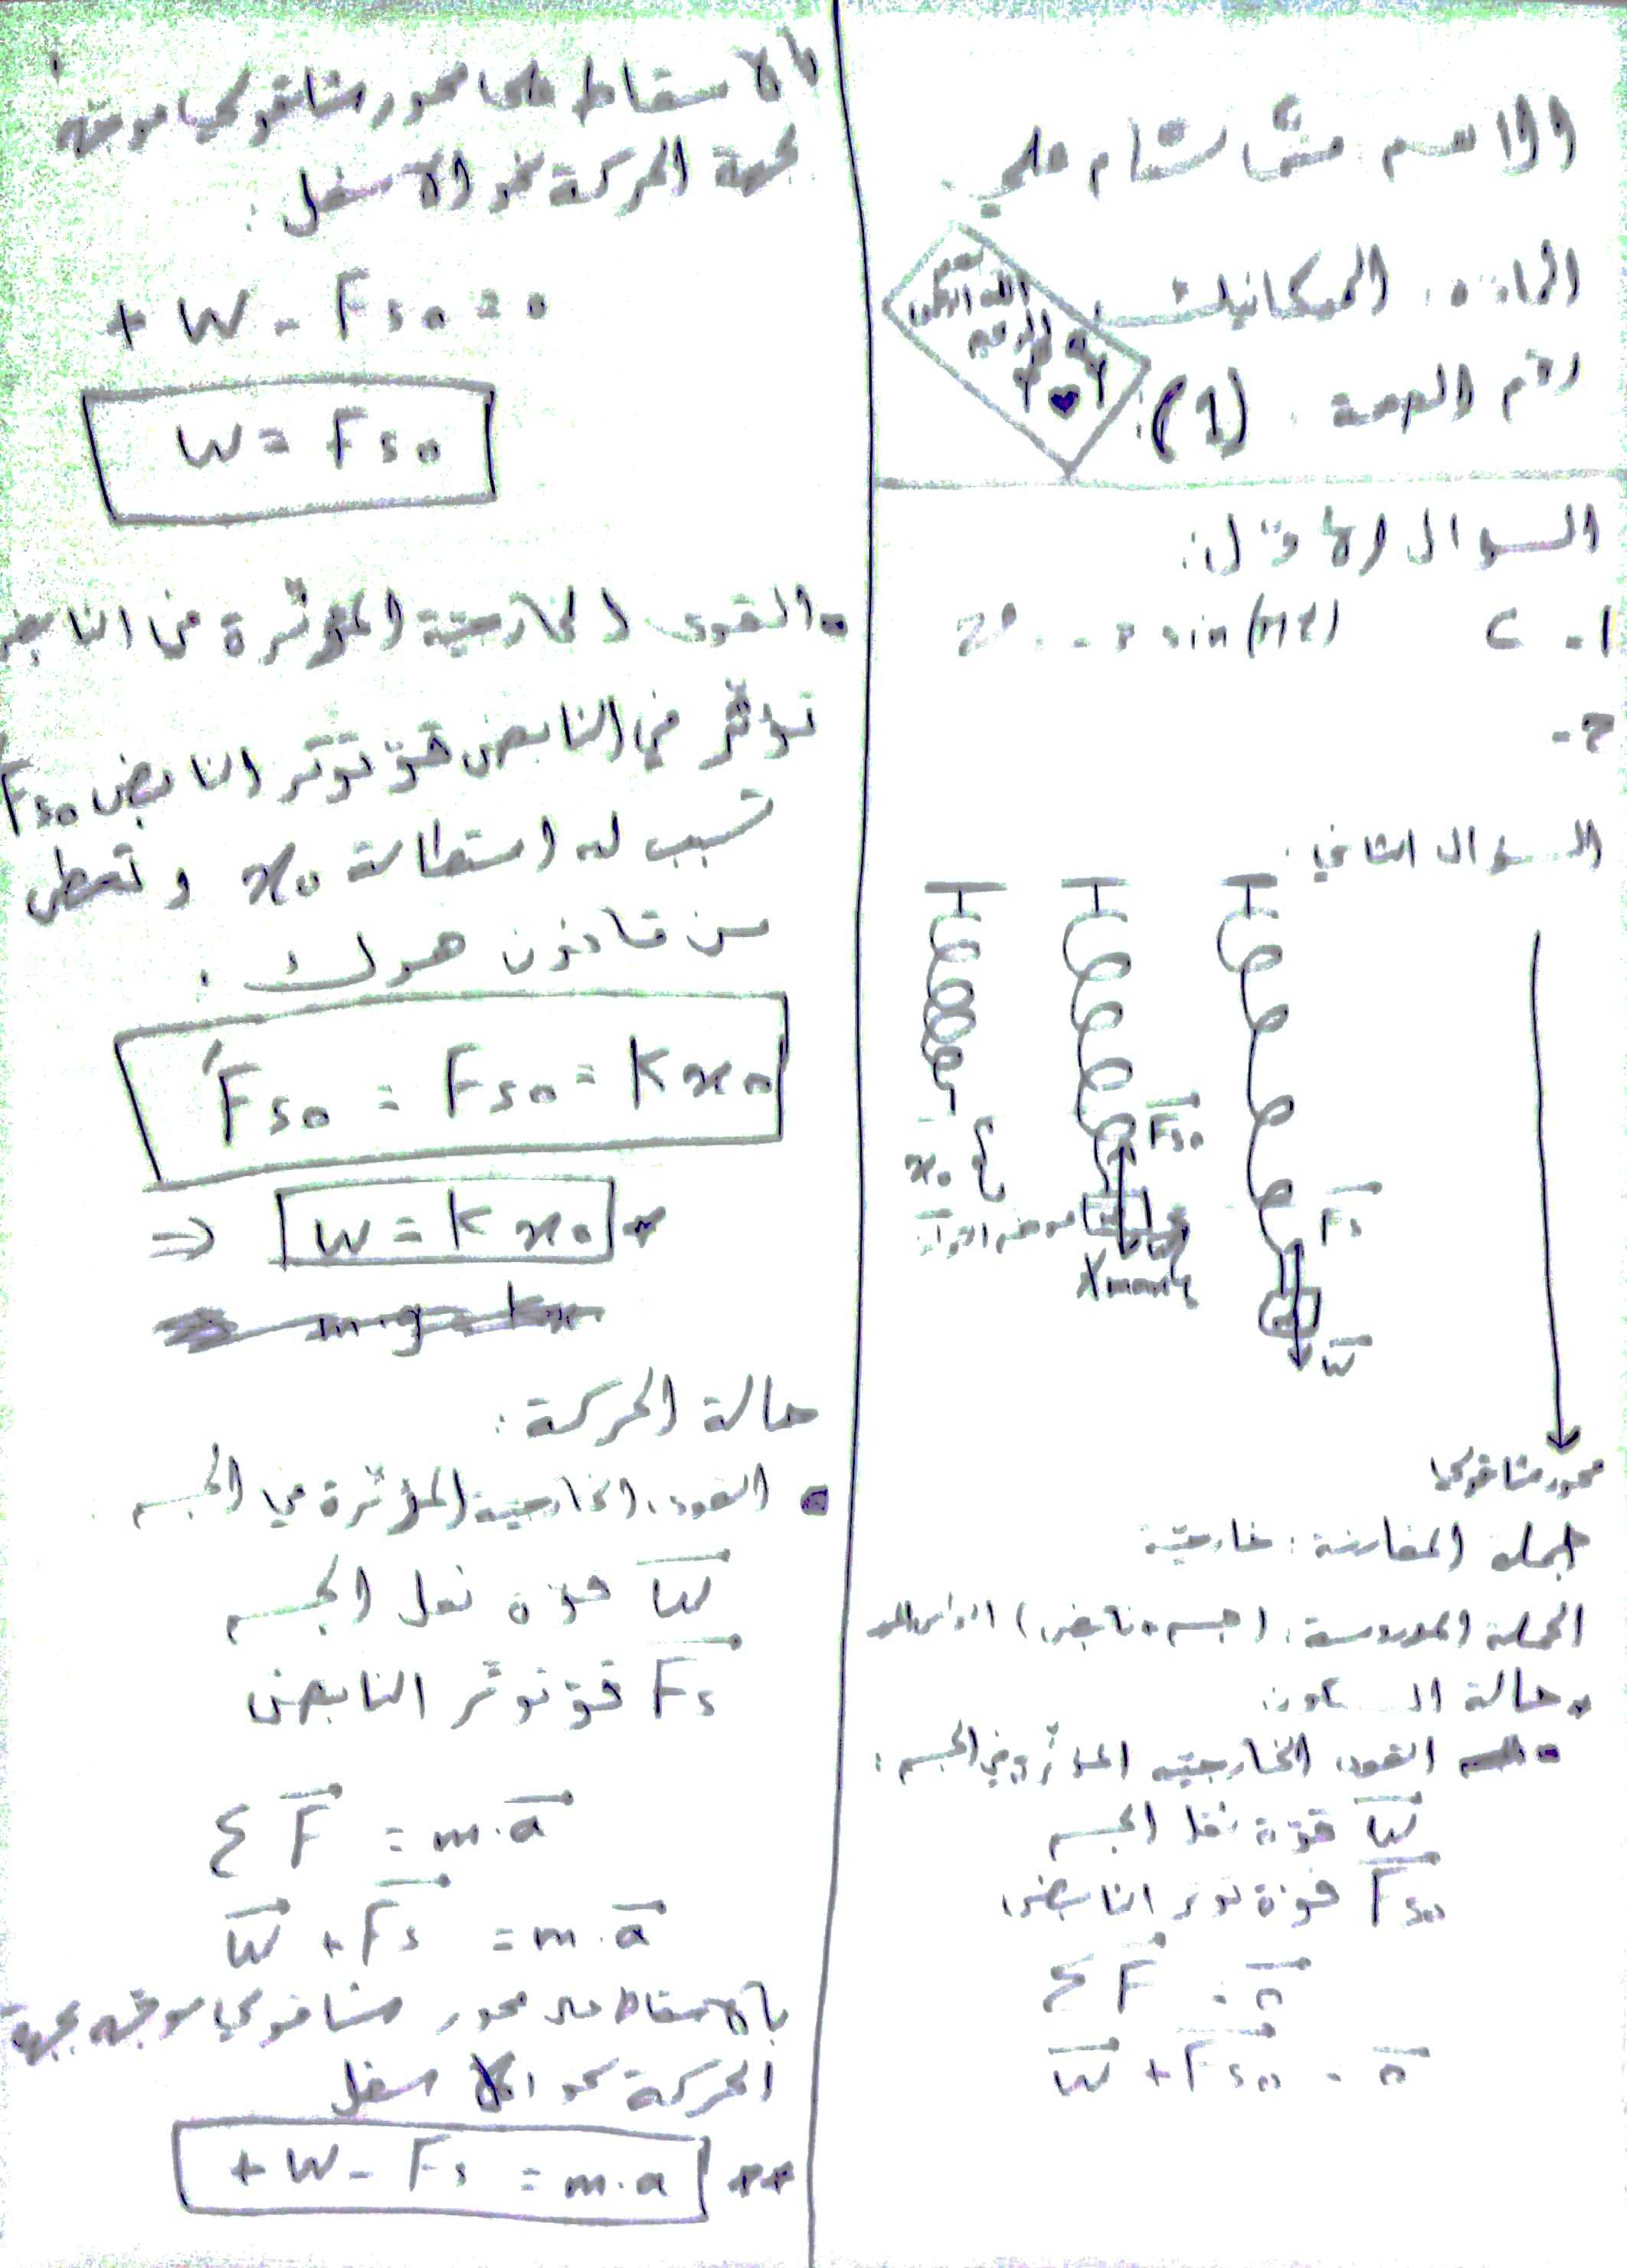 الاسم
المادة: الميكانيك
بسم
الله الرحمن
الرحيم
رقم (1)
السوال الأول:
1- C sin(πt)
2-
السوال الثاني:
Fs0
x0 {
Fs
W
محور شاقولي
جملة المقارنة: خارجية
الجملة المدروسة: (جسم، نابض)
حالة السكون:
القوى الخارجية المؤثرة في الجسم:
W قوة ثقل الجسم
Fs0 قوة توتر النابض
Σ F = 0
W + Fs0 = 0
بالاسقاط على محور شاقولي موجه
بجهة الحركة نحو الأسفل:
+ W - Fs0 = 0
W = Fs0
القوى الخارجية المؤثرة في النابض
تؤثر في النابض قوة توتر النابض Fs0
تسبب له استطالة x0 و تعطى
من قانون هوك.
F's0 = Fs0 = K x0
⇒ W = K x0 *
m.g = kx
حالة الحركة:
القوى الخارجية المؤثرة في الجسم
W قوة ثقل الجسم
Fs قوة توتر النابض
Σ F = m.a
W + Fs = m.a
بالاسقاط على محور شاقولي موجه بجهة
الحركة نحو الأسفل
+ W - Fs = m.a **